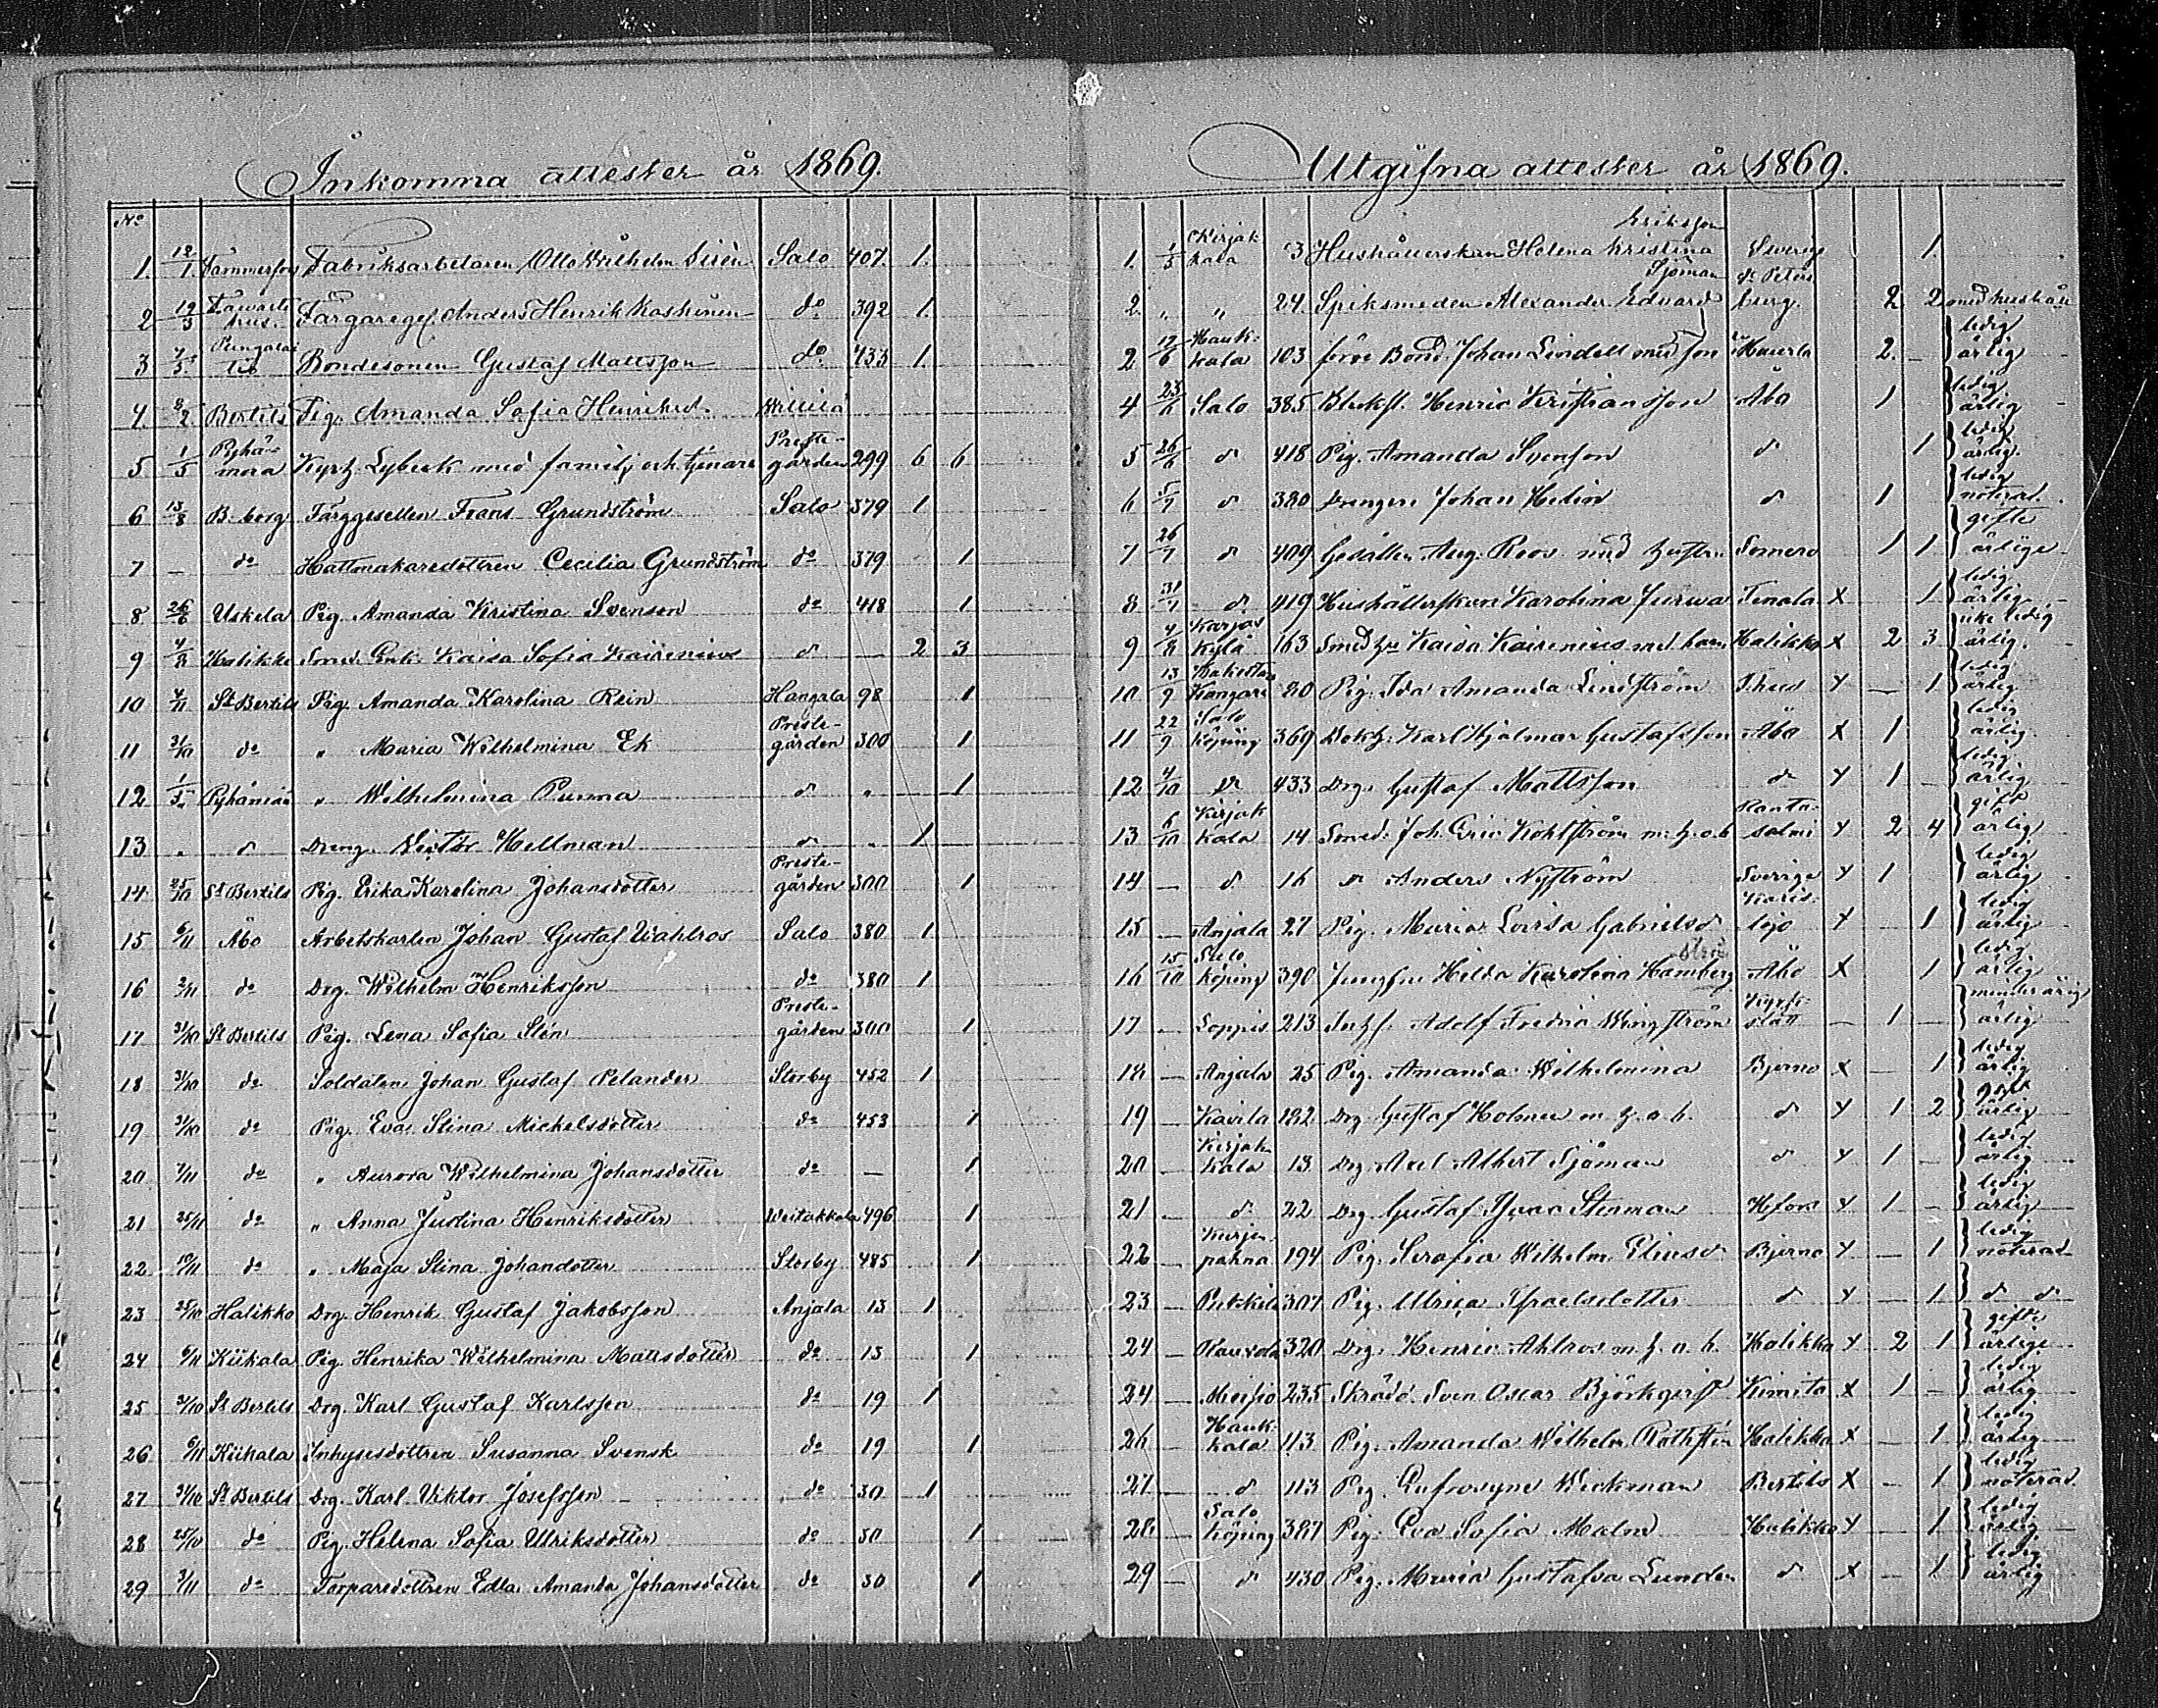 Inkomna attester år 1869.
No
1. 12/1. Tammerfors Fabriksarbetaren Otto Wilhelm Salo 407. 1.
2 12/3 Tawastehus. Färgaregef. Anders Henrik Koskinen do 392 1.
3 4/5. Bondesonen Gustaf Mattsson do. 433 1.
4. 8/2. Bertils Pig. Amanda Sofia Henriksd. Willilä
5 1/5 Pyhämaa Kyrkh. Lybeck med familj och tjenare Prestegården 299 6 6
6 13/8 B. borg Färggesellen Frans Grundström Salo 379 1
7 — do Hattmakaredottren Cecilia Grundström do 379 1
8. 26/6 Uskela Pig. Amanda Kristina Svenson do 418 1
9 4/8 Halikko Smed. Enk. Kaisa Sofia Kairenius d — 2 3
10 4/11 St Bertils Pig. Amanda Karolina Rein Hangala 98 1
11 31/10 do " Maria Wilhelmina Ek Prestegården 300 1
12 1/5 Pyhämaa " Wilhelmina Purma d " 1
13 " d Dreng. Victor Hellman d " 1
14 25/10 St Bertils Pig. Erika Karolina Johansdotter Prestegården 300 1
15 6/11 Åbo Arbetskarlen Johan Gustaf Wahlros Salo 380 1
16 2/11 do Drg. Wilhelm Henriksson do 380 1
17 31/10 St Bertils Pig. Lena Sofia Stén Prestegården 300 1
18 31/10 do Soldaten Johan Gustaf Pelander Storby 452 1
19 31/10 do Pig. Eva Stina Mickelsdotter do 453 1
20 7/11 do " Aurora Wilhelmina Johansdotter do — 1
21 25/11 do " Anna Justina Henriksdotter Weitakkala 496 1
22 10/11 do " Maja Stina Johandotter Storby 485 1
23 25/10 Halikko Drg. Henrik Gustaf Jakobsson Anjala 13 1
24 6/11 Kiikala Pig. Henrika Wilhelmina Mattsdotter do 13 1
25 31/10 St Bertils Drg. Karl Gustaf Karlsson do 19 1
26 6/11 Kiikala Inhysesdottren Susanna Svensk do 19 1
27 31/10 St Bertils Drg. Karl Viktor Josefsson do 30 1
28 25/10 do Pig. Helena Sofia Ulriksdotter do 30 1
29 3/11 do Torparedottren Edla Amanda Johansdotter do 30 1
Utgifna attester år 1869.
1. 1/5 Kirjakkala 3 Hushållerskan Helena Kristina Eriksson Sverige 1.
2. " " 24. Spiksmeden Alexander Edvard Sjöman St Petersburg. 2 2
2 12/6 Haukkala 103 förre Bond. Johan Lindell med son 2. — ledig ärlig
4 23/6 Salo 385 Henric Kristiansson Åbo 1 ledig ärlig
5 26/6 d 418 Pig. Amanda Svenson d 1 ledig ärlig.
6 5/7 d 380 Drengen Johan Helin d 1 ledig noterad.
7 26/7 d 409 Gesällen Aug. Roos med hustru Somero 1 1 gifte ärlige
8 31/7 d. 419 Hushållerskan Karolina Tenala X 1 ledig ärlig
9 4/8 Karjaskylä 163 Smed Kaisa Kairenius med barn Halikko X 2 3 icke ledig ärlig.
10 13/9 Kangari 80 Pig. Ida Amanda Lindström X — 1 ledig ärlig
11 22/9 Salo köping 369 Bokh. Karl Hjalmar Gustafsson Åbo X 1 ledig ärlig
12 4/10 d 433 Drg. Gustaf Mattsson d X 1 — ledig ärlig
13 6/10 Kirjakkala 14 Smed. Joh. Eric Kohlström m. h. o. b Rantasalmi X 2 4 gift ärlig
14 — d. 16 d Anders Nyström Sverige X 1 ledig ärlig
15 — Anjala 27 Pig. Maria Lovisa Gabrielsd Karislojo X — 1 ledig ärlig
16 15/10 Salo köping 390 Jungfru Hilda Karolina Hamberg Åbo X 1 ledig ärlig
17 — Soppis 213 Adolf Fredric Wingström Kyrkslätt — 1 — minderårig ärlig
18 — Anjala 25 Pig. Amanda Wilhelmina Bjerno X 1 ledig ärlig
19 — Kavila 182 Drg Gustaf m h. o. b. d X 1 2 gift ärlig
20 — Kirjakkala 13 Drg. Axel Albert Sjöman d X 1 — ledig ärlig
21 — d. 22 Drg. Gustaf Isaac Stenman Hfors X 1 — ledig ärlig
22 — 194 Pig. Serafia Wilhelm. Eliasd Bjerno X — 1 ledig noterad
23 — 307 Pig. Ulrica Israelsdotter d X — 1 d d
24 — 320 Drg. Henric Ahlros m h. o. b. Halikko X 2 1 gifte ärlige
24 — Moisio 235 Skrädd. Sven Oscar Björkqvist Kimito X 1 — ledig ärlig
26 — Haukkala 113 Pig. Amanda Wilhelm. Halikko X — 1 ledig ärlig
27 — d 113 Pig. Eufrosyne Wickman Bertils X — 1 ledig noterad.
28 — Salo köping 387 Pig. Eva Sofia Malm Halikko X — 1 ledig ärlig
29 — d 430 Pig. Maria Gustafva Lunden d X — 1 ledig ärlig